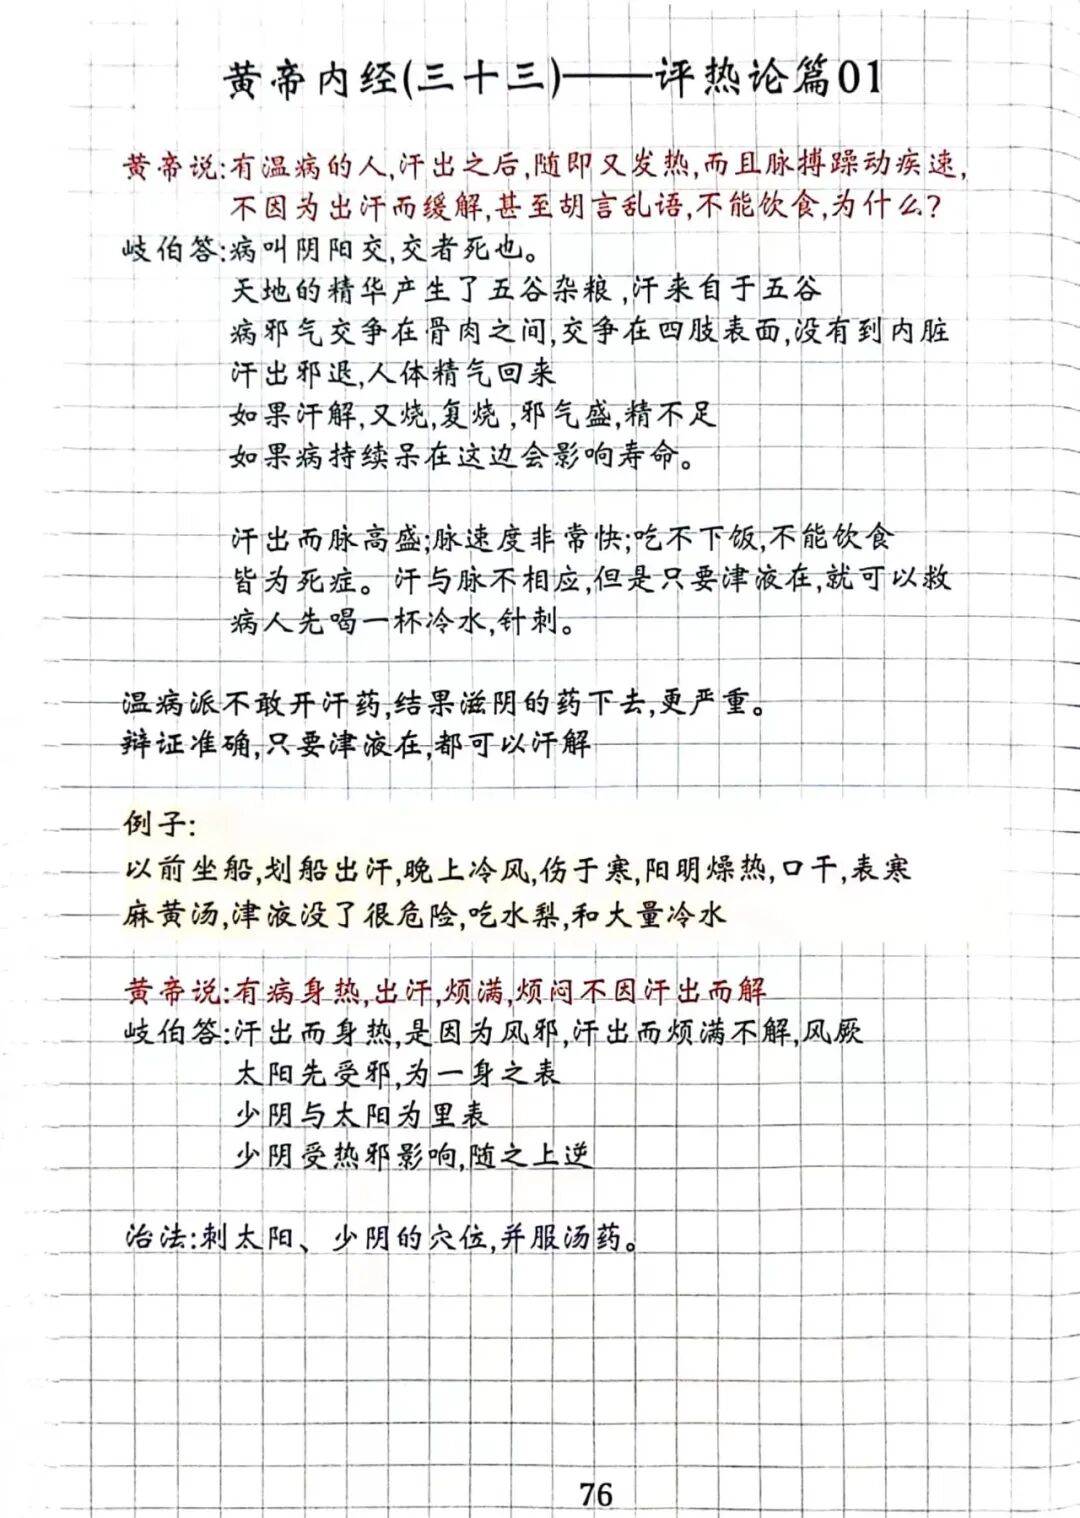 黄帝内经(三十三)——评热论篇01
黄帝说:有温病的人,汗出之后,随即又发热,而且脉搏躁动疾速,
不因为出汗而缓解,甚至胡言乱语,不能饮食,为什么?
岐伯答:病叫阴阳交,交者死也。
天地的精华产生了五谷杂粮,汗来自于五谷
病邪气交争在骨肉之间,交争在四肢表面,没有到内脏
汗出邪退,人体精气回来
如果汗解,又烧,复烧,邪气盛,精不足
如果病持续呆在这边会影响寿命。
汗出而脉高盛;脉速度非常快;吃不下饭,不能饮食
皆为死症。汗与脉不相应,但是只要津液在,就可以救
病人先喝一杯冷水,针刺。
温病派不敢开汗药,结果滋阴的药下去,更严重。
辩证准确,只要津液在,都可以汗解
例子:
以前坐船,划船出汗,晚上冷风,伤于寒,阳明燥热,口干,表寒
麻黄汤,津液没了很危险,吃水梨,和大量冷水
黄帝说:有病身热,出汗,烦满,烦闷不因汗出而解
岐伯答:汗出而身热,是因为风邪,汗出而烦满不解,风厥
太阳先受邪,为一身之表
少阴与太阳为里表
少阴受热邪影响,随之上逆
治法:刺太阳、少阴的穴位,并服汤药。
76